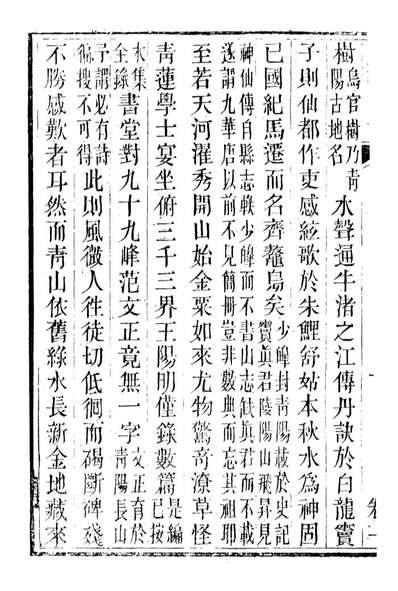 樹烏官樹乃青陽古地名水聲通牛渚之江傳丹訣於白龍竇
子則仙都作吏感絃歌於朱鯉舒姑本秋水為神固
已國紀馬遷而名齊鼇鳥矣少皞封青陽載於史記竇真君陵陽山飛昇見
神仙傳自縣志載少皞而不書山志缺真君而不載遂謂九華唐以前不見簡冊豈非數典而忘其祖耶
至若天河濯秀開山始金粟如來尤物驚奇潦草怪
青蓮學士宴坐俯三千三界王陽明僅錄數篇是編已按
本集全錄書堂對九十九峰范文正竟無一字文正育於青陽長山
予謂必有詩徧搜不可得此則風微人往徒切低徊而碣斷碑殘
不勝感歎者耳然而青山依舊綠水長新金地藏來